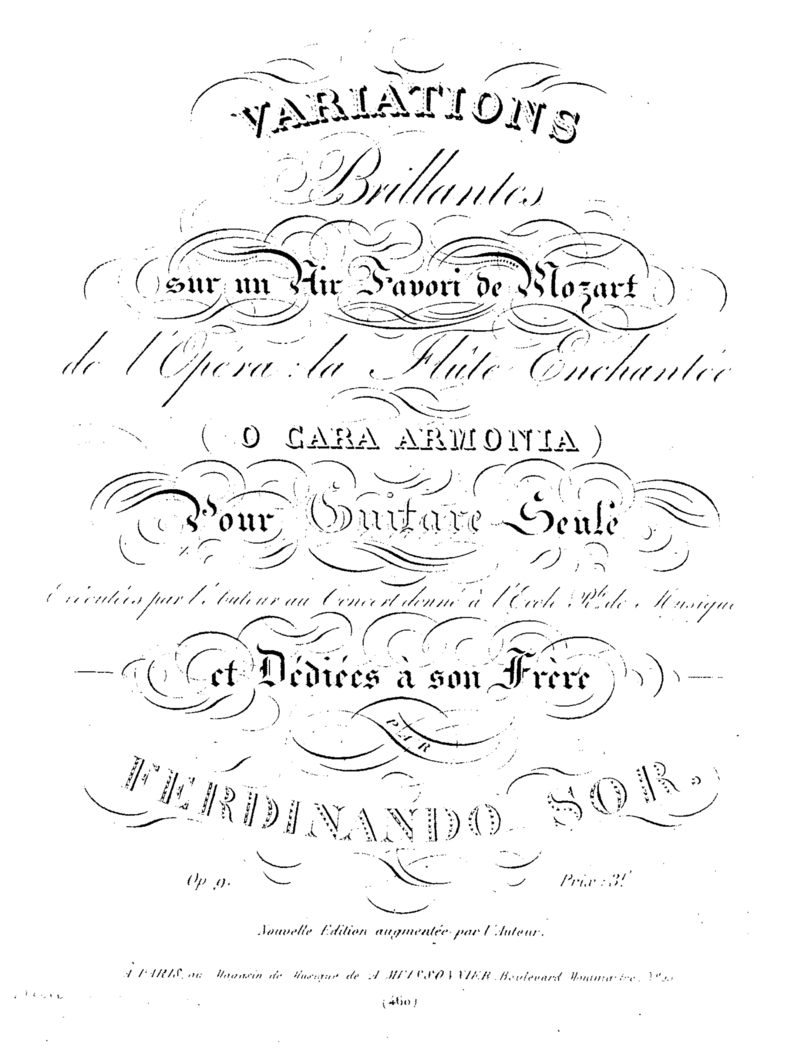 VARIATIONS
Brillantes
sur un Air Favori de Mozart
de l'Opéra : la Flûte Enchantée
( O CARA ARMONIA )
Pour Guitare Seule
Exécutées par l'Auteur au Concert donné à l'École Rle. de Musique
et Dédiées à son Frère
PAR
FERDINANDO SOR.
Op 9. Prix : 3f
Nouvelle Edition augmentée par l'Auteur.
À PARIS, au Magasin de Musique de A MEISSONNIER, Boulevard Montmartre,
(460)